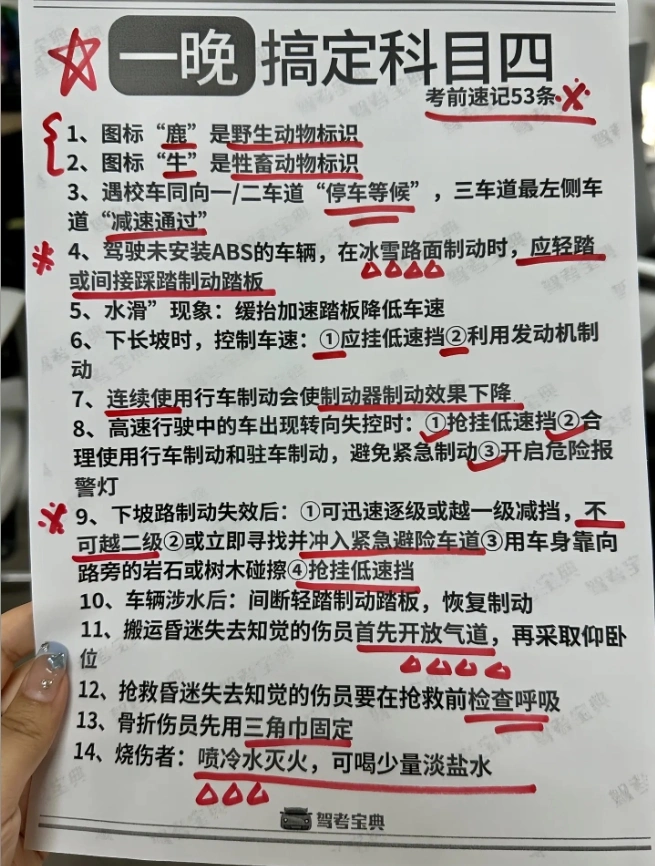 一晚 搞定科目四
考前速记53条
1、图标“鹿”是野生动物标识
2、图标“牛”是牲畜动物标识
3、遇校车同向一/二车道“停车等候”，三车道最左侧车
道“减速通过”
4、驾驶未安装ABS的车辆，在冰雪路面制动时，应轻踏
或间接踩踏制动踏板
5、水滑”现象：缓抬加速踏板降低车速
6、下长坡时，控制车速：①应挂低速挡②利用发动机制
动
7、连续使用行车制动会使制动器制动效果下降
8、高速行驶中的车出现转向失控时：①抢挂低速挡②合
理使用行车制动和驻车制动，避免紧急制动③开启危险报
警灯
9、下坡路制动失效后：①可迅速逐级或越一级减挡，不
可越二级②或立即寻找并冲入紧急避险车道③用车身靠向
路旁的岩石或树木碰擦④抢挂低速挡
10、车辆涉水后：间断轻踏制动踏板，恢复制动
11、搬运昏迷失去知觉的伤员首先开放气道，再采取仰卧
位
12、抢救昏迷失去知觉的伤员要在抢救前检查呼吸
13、骨折伤员先用三角巾固定
14、烧伤者：喷冷水灭火，可喝少量淡盐水
驾考宝典